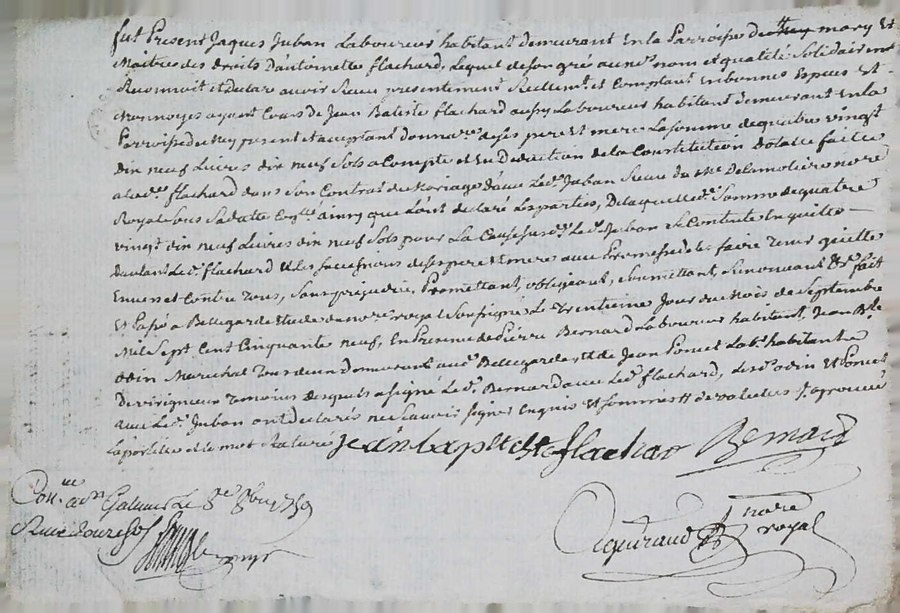 fut Present Jaques Juban Laboureur habitant demeurant En la Parroisse de mary Et
Maitre des droits D'antoinette flachard, Lequel de son gré au nom et qualité Solidairemt
Reconnoit et declare avoir Receu presentement Reellemt et Comptant En bonnes Especes Et
Monnoyes ayant Cours de Jean Batiste flachard aussy Laboureur habitant demeurant En la
Parroisse de present et acceptant de ses pere Et mere La somme de quatre vingt
dix neuf Livres dix neuf Sols a Compte et En Deduction de la Constitution dotale faitte
a lad. flachard dans Son Contrat de Mariage Avec Led. Juban Receu du Me Delamoliere nore
Royal Sous Sa datte ainsy que L'ont declaré Les parties, De laquelle de. Somme de quatre
vingt dix neuf Livres dix neuf Sols pour La Cause susd. Led. Juban Se Contente En quitte
Led. flachard Et les Successeurs de ses pere Et mere avec Promesse de Les faire tenir quitte
Envers et Contre tous, Sans prejudice, Promettant, obligeant, Soumettant, Renonceant &a fait
Et Passé a Bellegarde Etude du nore royal Soussigné Le Trentieme Jour du Mois de Septembre
Mil Sept Cent Cinquante neuf, En Presence de Pierre Bernard Laboureur habitant, Jean Bte
odin Marechal Demeurant aud. Bellegarde Et de Jean Poncet Labr. habitant
De virigneux temoins desquels a signé Led. Bernard avec Led. flachard, Lesd. odin Et Poncet
avec Led. Juban ont declarés ne Scavoir Signer Enquis Et Sommés
La postille et le mot Raturé
Jean baptiste flachar Bernard
Con.lle a Galmier Le 8e 8bre 1759
Receu douze Sols
nore
royal